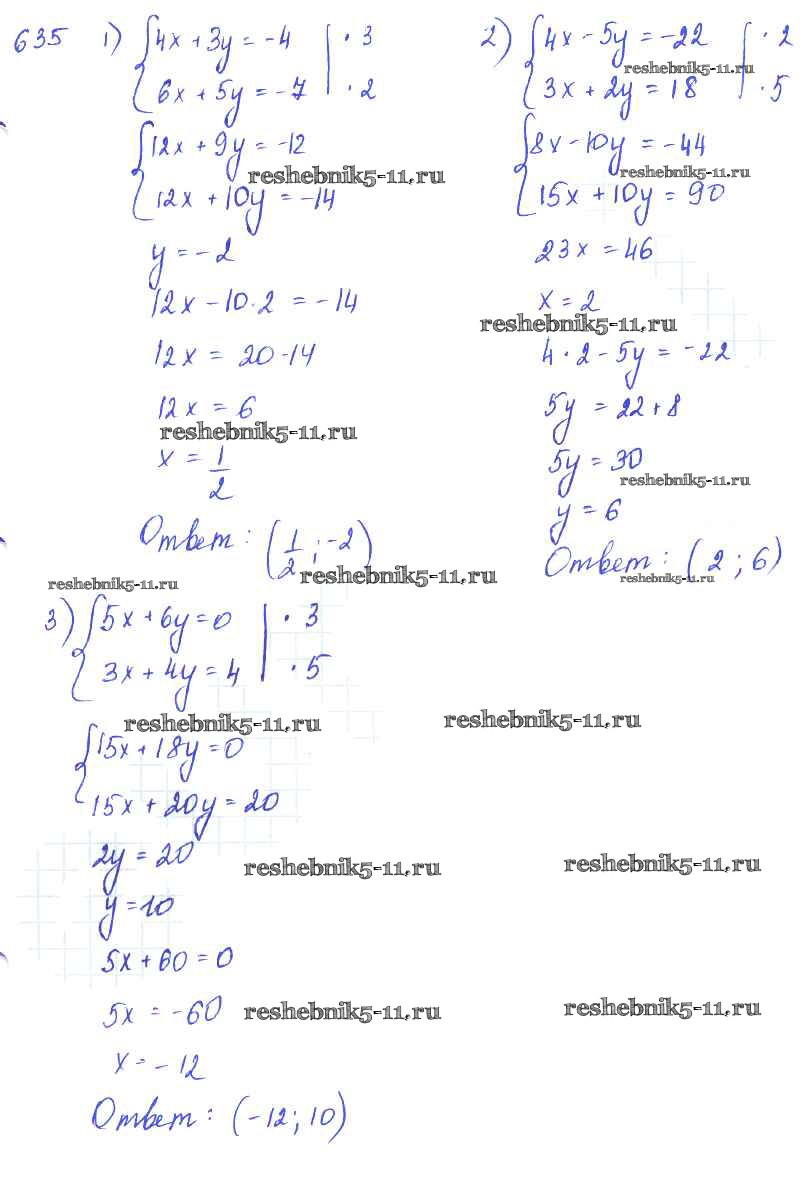 635 1) { 4x + 3y = -4 | · 3
6x + 5y = -7 | · 2
{ 12x + 9y = -12
reshebnik5-11.ru
12x + 10y = -14
y = -2
12x - 10·2 = -14
12x = 20-14
12x = 6
reshebnik5-11.ru
x = 1/2
Ответ: (1/2 ; -2)
reshebnik5-11.ru
2) { 4x - 5y = -22 | · 2
reshebnik5-11.ru
3x + 2y = 18 | · 5
{ 8x - 10y = -44
reshebnik5-11.ru
15x + 10y = 90
23x = 46
x = 2
reshebnik5-11.ru
4 · 2 - 5y = -22
5y = 22 + 8
5y = 30
reshebnik5-11.ru
y = 6
Ответ: (2 ; 6)
reshebnik5-11.ru
reshebnik5-11.ru
3) { 5x + 6y = 0 | · 3
3x + 4y = 4 | · 5
reshebnik5-11.ru reshebnik5-11.ru
{ 15x + 18y = 0
15x + 20y = 20
2y = 20
reshebnik5-11.ru reshebnik5-11.ru
y = 10
5x + 60 = 0
5x = -60
reshebnik5-11.ru reshebnik5-11.ru
x = -12
Ответ: (-12; 10)